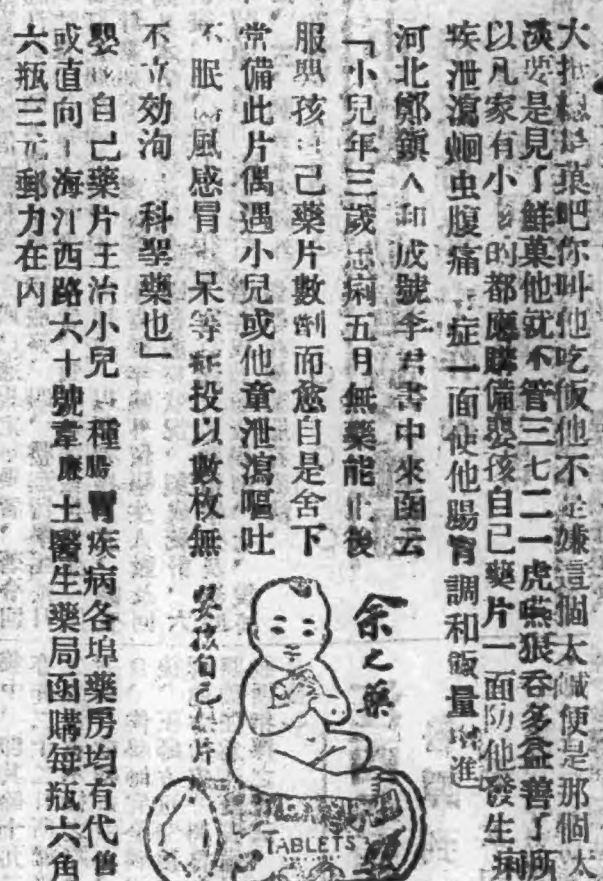 大抵總是菓吧你叫他吃飯他不是嫌這個太鹹便是那個太
淡要是見了鮮菓他就不管三七二一虎嚥狠吞多益善了所
以凡家有小的都應購備嬰孩自己藥片一面防他發生痢
疾泄瀉蛔虫腹痛症一面使他腸胃調和飯量增進
河北鄭鎮人和成號李君書中來函云
「小兒年三歲患痢五月無藥能止後
服嬰孩自己藥片數劑而愈自是舍下
常備此片偶遇小兒或他童泄瀉嘔吐
不眠傷風感冒呆等症投以數枚無
不立効洵科聖藥也」
嬰孩自己藥片主治小兒種腸胃疾病各埠藥房均有代售
或直向上海江西路六十號韋廉士醫生藥局函購每瓶六角
六瓶三元郵力在內
余之藥
嬰孩自己藥片
TABLETS